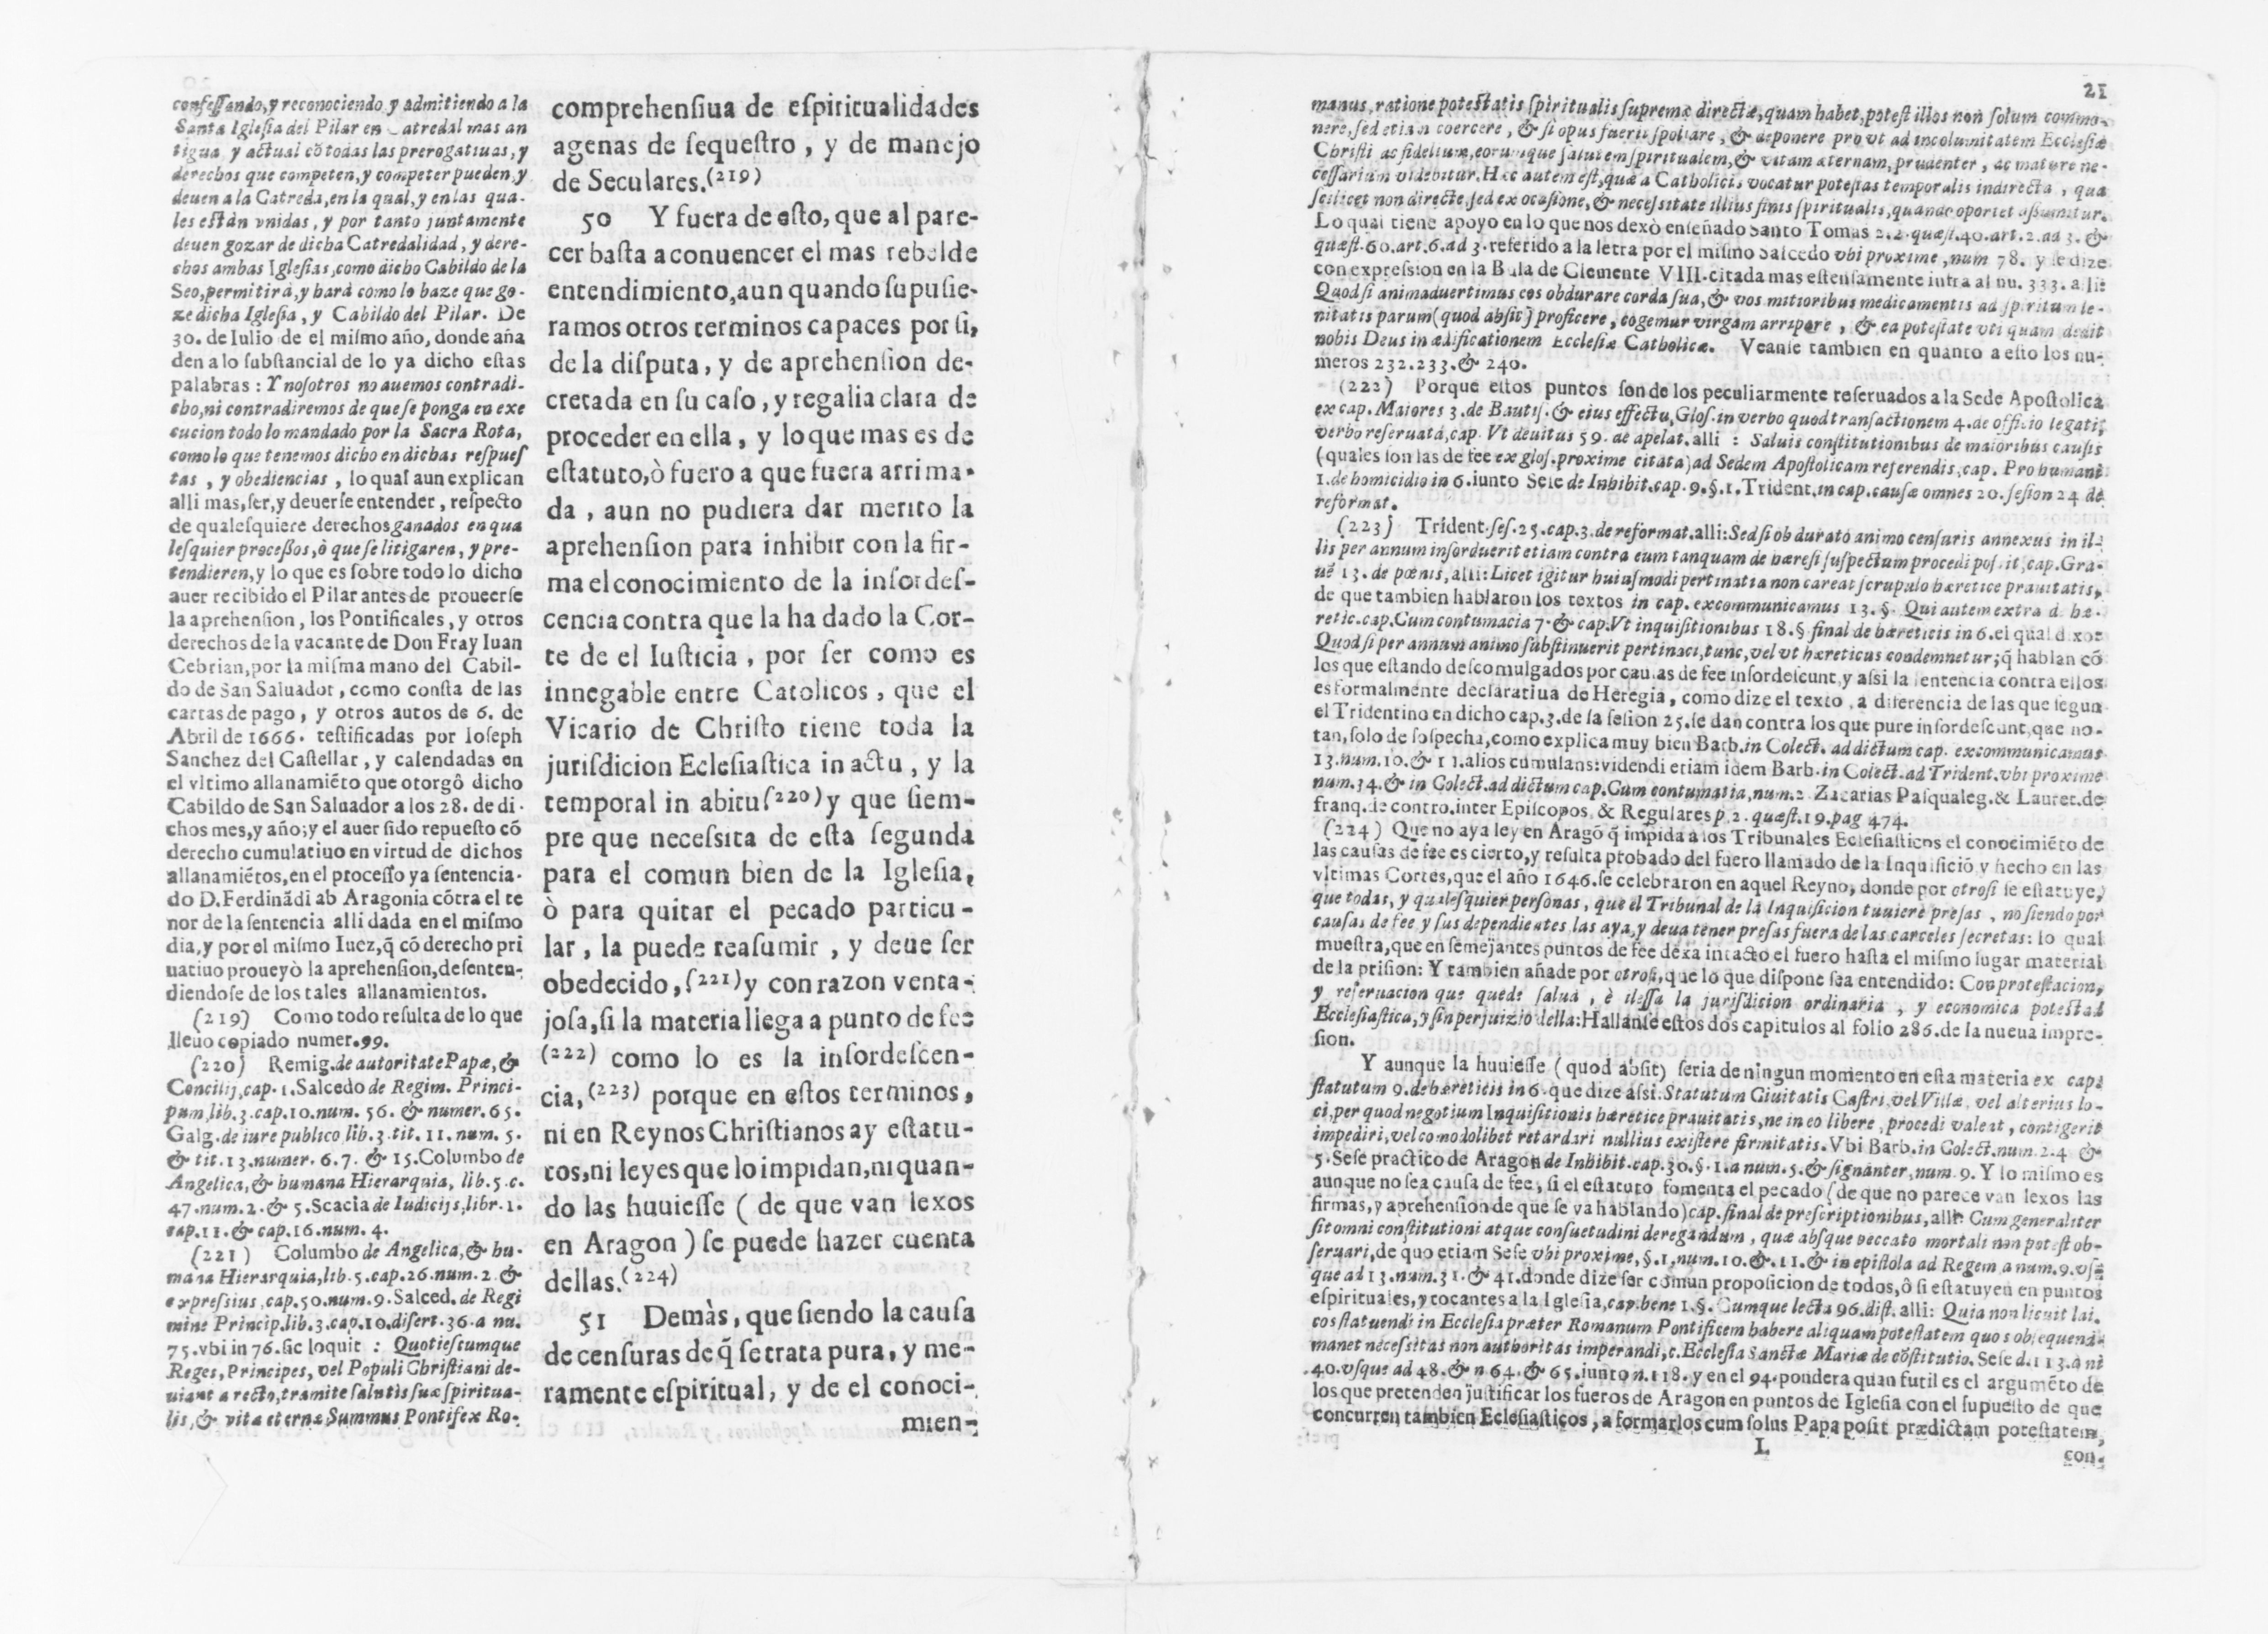 confeſſando, y reconociendo y admitiendo a la
Santa Igleſia del Pilar en Catredal mas an
tigua y actual cõ todas las prerogatiuas, y
derechos que competen, y competer pueden, y
deuen a la Catreda, en la qual, y en las qua-
les eſtàn vnidas, y por tanto juntamente
deuen gozar de dicha Catredalidad, y dere-
chos ambas Igleſias, como dicho Cabildo de la
Seo, permitirà, y harà como lo haze que go-
ze dicha Igleſia, y Cabildo del Pilar. De
30. de Iulio de el miſmo año, donde aña
den a lo ſubſtancial de lo ya dicho eſtas
palabras: Y noſotros no auemos contradi-
cho, ni contradiremos de que ſe ponga en exe
cucion todo lo mandado por la Sacra Rota,
como lo que tenemos dicho en dichas reſpueſ
tas, y obediencias, lo qual aun explican
alli mas, ſer, y deuerſe entender, reſpecto
de qualeſquiere derechos ganados en qua
leſquier proceſſos, ò que ſe litigaren, y pre-
tendieren, y lo que es ſobre todo lo dicho
auer recibido el Pilar antes de proueerſe
la aprehenſion, los Pontificales, y otros
derechos de la vacante de Don Fray Iuan
Cebrian, por la miſma mano del Cabil-
do de San Saluador, como conſta de las
cartas de pago, y otros autos de 6. de
Abril de 1666. teſtificadas por Ioſeph
Sanchez del Caſtellar, y calendadas en
el vltimo allanamiẽto que otorgô dicho
Cabildo de San Saluador a los 28. de di-
chos mes, y año; y el auer ſido repueſto cõ
derecho cumulatiuo en virtud de dichos
allanamiẽtos, en el proceſſo ya ſentencia-
do D. Ferdinãdi ab Aragonia cõtra el te
nor de la ſentencia alli dada en el miſmo
dia, y por el miſmo Iuez, q̃ cõ derecho pri
uatiuo proueyò la aprehenſion, deſenten-
diendoſe de los tales allanamientos.
(219) Como todo reſulta de lo que
lleuo copiado numer. 99.
(220) Remig. de autoritate Papæ, &
Concilij, cap. 1. Salcedo de Regim. Princi-
pum, lib. 3. cap. 10. num. 56. & numer. 65.
Galg. de iure publico lib. 3. tit. 11. num. 5.
& tit. 13. numer. 6. 7. & 15. Columbo de
Angelica, & humana Hierarquia, lib. 5. c.
47. num. 2. & 5. Scacia de Iudicijs, libr. 1.
cap. 11. & cap. 16. num. 4.
(221) Columbo de Angelica, & hu-
mana Hierarquia, lib. 5. cap. 26. num. 2. &
expreſsius, cap. 50. num. 9. Salced. de Regi
mine Princip. lib. 3. cap. 10. diſert. 36. a nu.
75. vbi in 76. ſic loquit: Quotieſcumque
Reges, Principes, vel Populi Chriſtiani de-
uiant a recto, tramite ſalutis ſuæ ſpiritua-
lis, & vita eternæ Summus Pontifex Ro-
comprehenſiua de eſpiritualidades
agenas de ſequeſtro, y de manejo
de Seculares. (219)
50 Y fuera de eſto, que al pare-
cer baſta a conuencer el mas rebelde
entendimiento, aun quando ſupuſie-
ramos otros terminos capaces por ſi,
de la diſputa, y de aprehenſion de-
cretada en ſu caſo, y regalia clara de
proceder en ella, y lo que mas es de
eſtatuto, ò fuero a que fuera arrima-
da, aun no pudiera dar merito la
aprehenſion para inhibir con la fir-
ma el conocimiento de la inſordeſ-
cencia contra que la ha dado la Cor-
te de el Iuſticia, por ſer como es
innegable entre Catolicos, que el
Vicario de Chriſto tiene toda la
juriſdicion Ecleſiaſtica in actu, y la
temporal in abitu (220) y que ſiem-
pre que neceſsita de eſta ſegunda
para el comun bien de la Igleſia,
ò para quitar el pecado particu-
lar, la puede reaſumir, y deue ſer
obedecido, (221) y con razon venta-
joſa, ſi la materia llega a punto de fee
(222) como lo es la inſordeſcen-
cia, (223) porque en eſtos terminos,
ni en Reynos Chriſtianos ay eſtatu-
tos, ni leyes que lo impidan, ni quan-
do las huuieſſe (de que van lexos
en Aragon) ſe puede hazer cuenta
dellas. (224)
51 Demàs, que ſiendo la cauſa
de cenſuras de q̃ ſe trata pura, y me-
ramente eſpiritual, y de el conoci-
mien-
21
manus, ratione poteſtatis ſpiritualis ſupremæ directæ, quam habet, poteſt illos non ſolum commo-
nere, ſed etiam coercere, & ſi opus fuerit ſpoliare, & deponere pro vt ad incolumitatem Eccleſiæ
Chriſti ac fidelium, eorumque ſalutem ſpiritualem, & vitam æternam, prudenter, ac mature ne-
ceſſarium videbitur. Hæc autem eſt, quæ a Catholicis vocatur poteſtas temporalis indirecta, qua
ſcilicet non directe, ſed ex ocaſione, & neceſsitate illius finis ſpiritualis, quando oportet aſſumitur.
Lo qual tiene apoyo en lo que nos dexò enſeñado Santo Tomas 2. 2. quæſt. 40. art. 2. ad 3. &
quæſt. 60. art. 6. ad 3. referido a la letra por el miſmo Salcedo vbi proxime, num 78. y ſe dize
con expreſsion en la Bula de Clemente VIII. citada mas eſtenſamente infra al nu. 333. alli:
Quod ſi animaduertimus eos obdurare corda ſua, & vos mitioribus medicamentis ad ſpiritum le-
nitatis parum (quod abſit) proficere, cogemur virgam arripere, & ea poteſtate vti quam dedit
nobis Deus in ædificationem Eccleſiæ Catholicæ. Veanſe tambien en quanto a eſto los nu-
meros 232. 233. & 240.
(222) Porque eſtos puntos ſon de los peculiarmente reſeruados a la Sede Apoſtolica
ex cap. Maiores 3. de Bautiſ. & eius effectu, Gloſ. in verbo quod tranſactionem 4. de officio legati,
verbo reſeruata, cap. Vt deuitus 59. de apelat. alli: Saluis conſtitutionibus de maioribus cauſis
(quales ſon las de fee ex gloſ. proxime citata) ad Sedem Apoſtolicam referendis, cap. Pro humani
1. de homicidio in 6. iunto Seſe de Inhibit. cap. 9. §. 1. Trident. in cap. cauſæ omnes 20. ſeſion 24 de
reformat.
(223) Trident. ſeſ. 25. cap. 3. de reformat. alli: Sed ſi obdurato animo cenſuris annexus in il-
lis per annum inſorduerit etiam contra eum tanquam de hæreſi ſuſpectum procedi poſſit, cap. Gra-
uẽ 13. de pœnis, alli: Licet igitur huiuſmodi pertinatia non careat ſcrupulo hæretice prauitatis,
de que tambien hablaron los textos in cap. excommunicamus 13. §. Qui autem extra d. hæ-
retic. cap. Cum contumacia 7. & cap. Vt inquiſitionibus 18. § final de hæreticis in 6. el qual dixo:
Quod ſi per annum animo ſubſtinuerit pertinaci, tunc, vel vt hæreticus condemnetur; q̃ hablan cõ
los que eſtando deſcomulgados por cauſas de fee inſordeſcunt, y aſsi la ſentencia contra ellos
es formalmente declaratiua de Heregia, como dize el texto, a diferencia de las que ſegun
el Tridentino en dicho cap. 3. de la ſeſion 25. ſe dan contra los que pure inſordeſcunt, que no-
tan, ſolo de ſoſpecha, como explica muy bien Barb. in Colect. ad dictum cap. excommunicamus
13. num. 10. & 11. alios cumulans: videndi etiam idem Barb. in Colect. ad Trident. vbi proxime
num. 34. & in Colect. ad dictum cap. Cum contumatia, num. 2 Zacarias Paſqualeg. & Lauret. de
franq. de contro. inter Epiſcopos, & Regulares p. 2. quæſt. 19. pag 474.
(224) Que no aya ley en Aragõ q̃ impida a los Tribunales Ecleſiaſticos el conocimiẽto de
las cauſas de fee es cierto, y reſulta probado del fuero llamado de la Inquiſiciõ y hecho en las
vltimas Cortes, que el año 1646. ſe celebraron en aquel Reyno, donde por otroſi ſe eſtatuye,
que todas, y qualeſquier perſonas, que el Tribunal de la Inquiſicion tuuiere preſas, no ſiendo por
cauſas de fee y ſus dependientes, las aya, y deua tener preſas fuera de las carceles ſecretas: lo qual
mueſtra, que en ſemejantes puntos de fee dexa intacto el fuero haſta el miſmo lugar material
de la priſion: Y tambien añade por otroſi, que lo que diſpone ſea entendido: Con proteſtacion,
y reſeruacion que quede ſalua, è ileſſa la juriſdicion ordinaria, y economica poteſtad
Eccleſiaſtica, y ſin perjuizio della: Hallanſe eſtos dos capitulos al folio 286. de la nueua impre-
ſion.
Y aunque la huuieſſe (quod abſit) ſeria de ningun momento en eſta materia ex cap.
ſtatutum 9. de hæreticis in 6. que dize aſsi: Statutum Ciuitatis Caſtri, vel Villæ, vel alterius lo-
ci, per quod negotium Inquiſitionis hæretice prauitatis, ne in eo libere, procedi valeat, contigerit
impediri, vel comodolibet retardari nullius exiſtere firmitatis. Vbi Barb. in Colect. num. 2. 4 &
5. Seſe practico de Aragon de Inhibit. cap. 30. §. 1. a num. 5. & ſignanter, num. 9. Y lo miſmo es
aunque no ſea cauſa de fee, ſi el eſtatuto fomenta el pecado (de que no parece van lexos las
firmas, y aprehenſion de que ſe va hablando) cap. final de preſcriptionibus, alli: Cum generaliter
ſit omni conſtitutioni atque conſuetudini derogandum, quæ abſque peccato mortali non poteſt ob-
ſeruari, de quo etiam Seſe vbi proxime, §. 1. num. 10. & 11. & in epiſtola ad Regem a num. 9. vſ-
que ad 13. num. 31. & 41. donde dize ſer comun propoſicion de todos, ô ſi eſtatuyen en puntos
eſpirituales, y tocantes a la Igleſia, cap. bene 1. §. Cumque lecta 96. diſt. alli: Quia non licuit lai-
cos ſtatuendi in Eccleſia præter Romanum Pontificem habere aliquam poteſtatem quos obſequendi
manet neceſsitas non authoritas imperandi, c. Eccleſia Sanctæ Mariæ de cõſtitutio. Seſe d. 113. a nu
40. vſque ad 48. & n 64. & 65. iunto n. 118. y en el 94. pondera quan futil es el argumẽto de
los que pretenden juſtificar los fueros de Aragon en puntos de Igleſia con el ſupueſto de que
concurren tambien Ecleſiaſticos, a formarlos cum ſolus Papa poſit prædictam poteſtatem,
L
con-